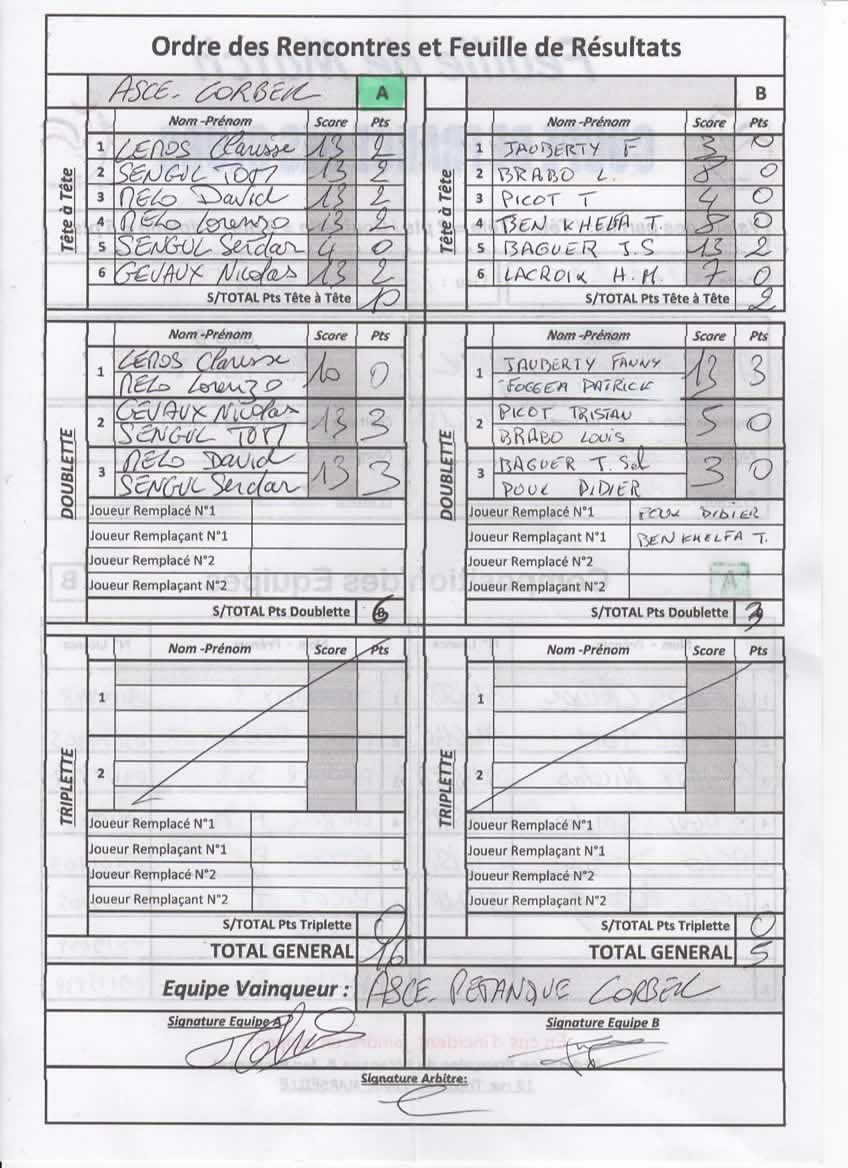 Ordre des Rencontres et Feuille de Résultats
ASCE. CORBEIL A B
Tête à Tête
Nom -Prénom Score Pts Nom -Prénom Score Pts
1 LEROS Clarisse 13 2 1 JAUBERTY F 3 0
2 SENGUL TOM 13 2 2 BRABO L. 8 0
3 MELO David 13 2 3 PICOT T 4 0
4 MELO Lorenzo 13 2 4 BEN KHELFA T. 8 0
5 SENGUL Serdar 4 0 5 BAGUER J.S 13 2
6 GEVAUX Nicolas 13 2 6 LACROIX H.M. 7 0
S/TOTAL Pts Tête à Tête 10 S/TOTAL Pts Tête à Tête 2
DOUBLETTE
Nom -Prénom Score Pts Nom -Prénom Score Pts
1 LEROS Clarisse 10 0 1 JAUBERTY FANNY 13 3
MELO Lorenzo FOGGEA PATRICK
2 GEVAUX Nicolas 13 3 2 PICOT TRISTAN 5 0
SENGUL TOM BRABO LOUIS
3 MELO David 13 3 3 BAGUER 3 0
SENGUL Serdar POUX DIDIER
Joueur Remplacé N°1 Joueur Remplacé N°1 POUX DIDIER
Joueur Remplaçant N°1 Joueur Remplaçant N°1 BEN KHELFA T.
Joueur Remplacé N°2 Joueur Remplacé N°2
Joueur Remplaçant N°2 Joueur Remplaçant N°2
S/TOTAL Pts Doublette 6 S/TOTAL Pts Doublette 3
TRIPLETTE
Nom -Prénom Score Pts Nom -Prénom Score Pts
1 1
2 2
Joueur Remplacé N°1 Joueur Remplacé N°1
Joueur Remplaçant N°1 Joueur Remplaçant N°1
Joueur Remplacé N°2 Joueur Remplacé N°2
Joueur Remplaçant N°2 Joueur Remplaçant N°2
S/TOTAL Pts Triplette 0 S/TOTAL Pts Triplette 0
TOTAL GENERAL 16 TOTAL GENERAL 5
Equipe Vainqueur : ASCE. PETANQUE CORBEIL
Signature Equipe A Signature Equipe B
Signature Arbitre: